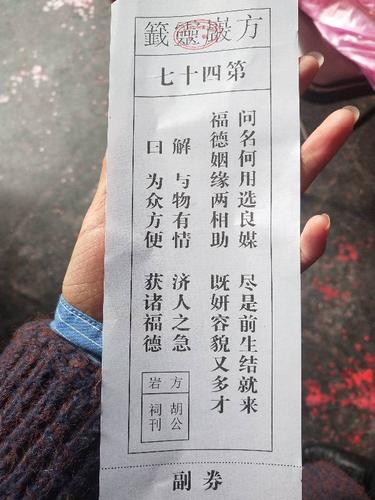 方巖靈籤
第四十七
问名何用选良媒 尽是前生结就来
福德姻缘两相助 既妍容貌又多才
解 与物有情 济人之急
曰 为众方便 获诸福德
方岩
胡公
祠刊
副券